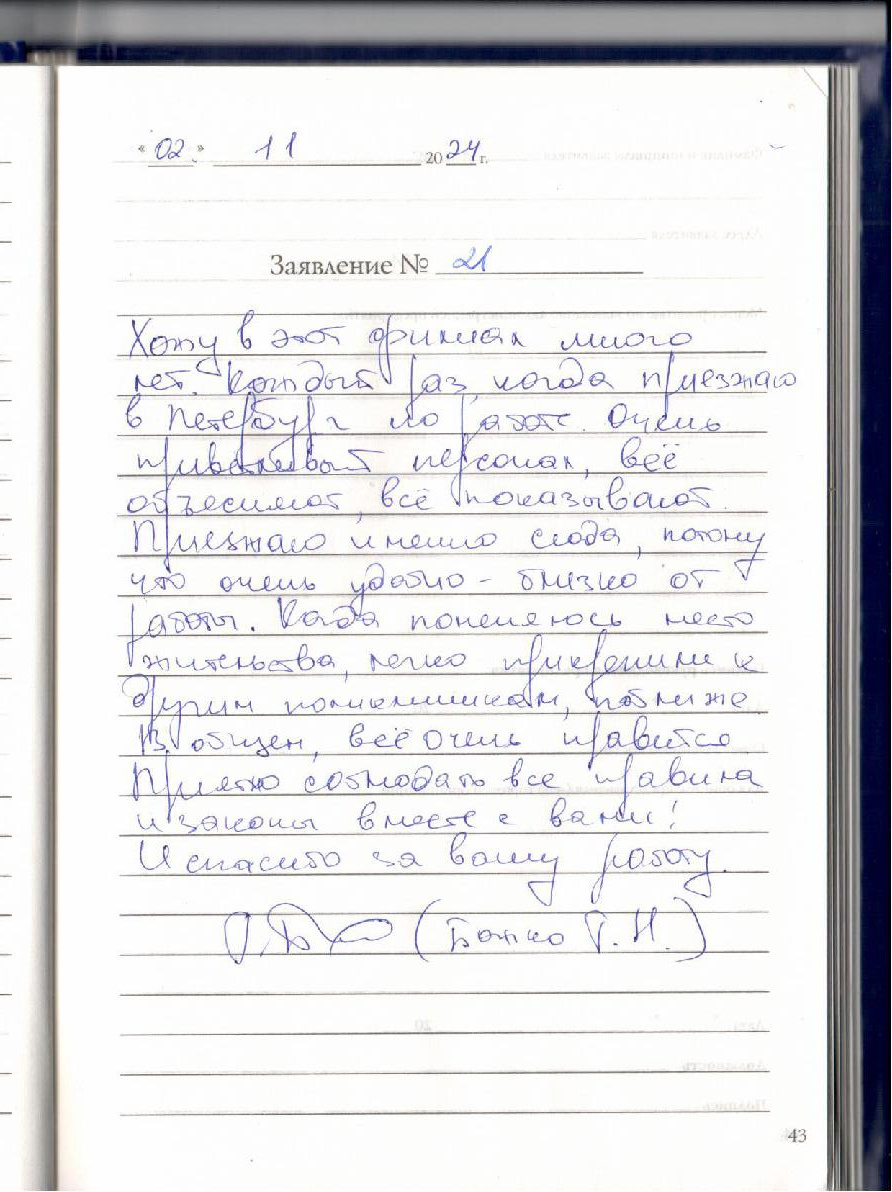 «02.» 11 2024 г.
Заявление № 21
Хожу в этот филиал много
лет. Каждый раз, когда приезжаю
в Петербург по работе. Очень
приветливый персонал, всё
объясняют, всё показывают.
Приезжаю именно сюда, потому
что очень удобно - близко от
работы. Когда поменялось место
жительства, легко прикрепили к
другим поликлиникам, поближе
В общем, всё очень нравится
Приятно соблюдать все правила
и законы вместе с вами!
И спасибо за вашу работу.
(Божко Г. Н.)
43